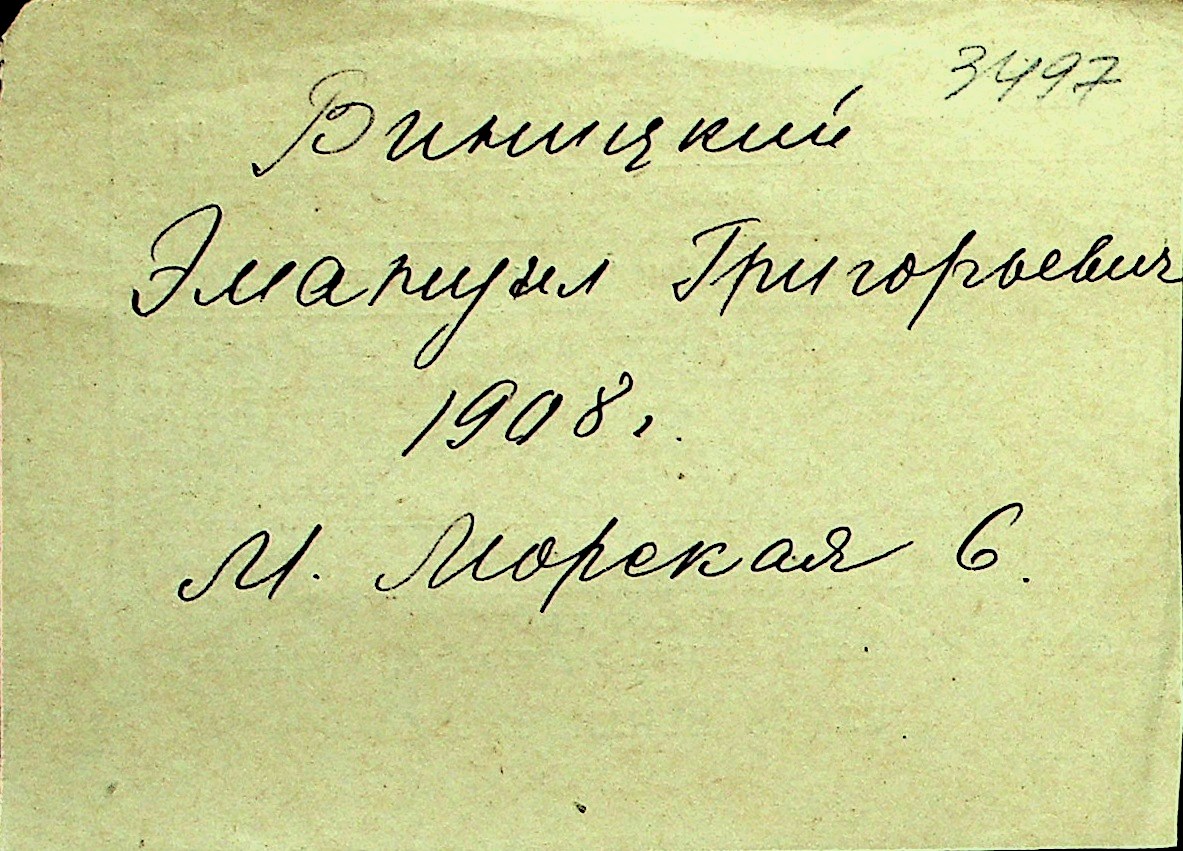 3497
Виницкий
Эмануил Григорьевич
1908 г.
М. Морская 6.